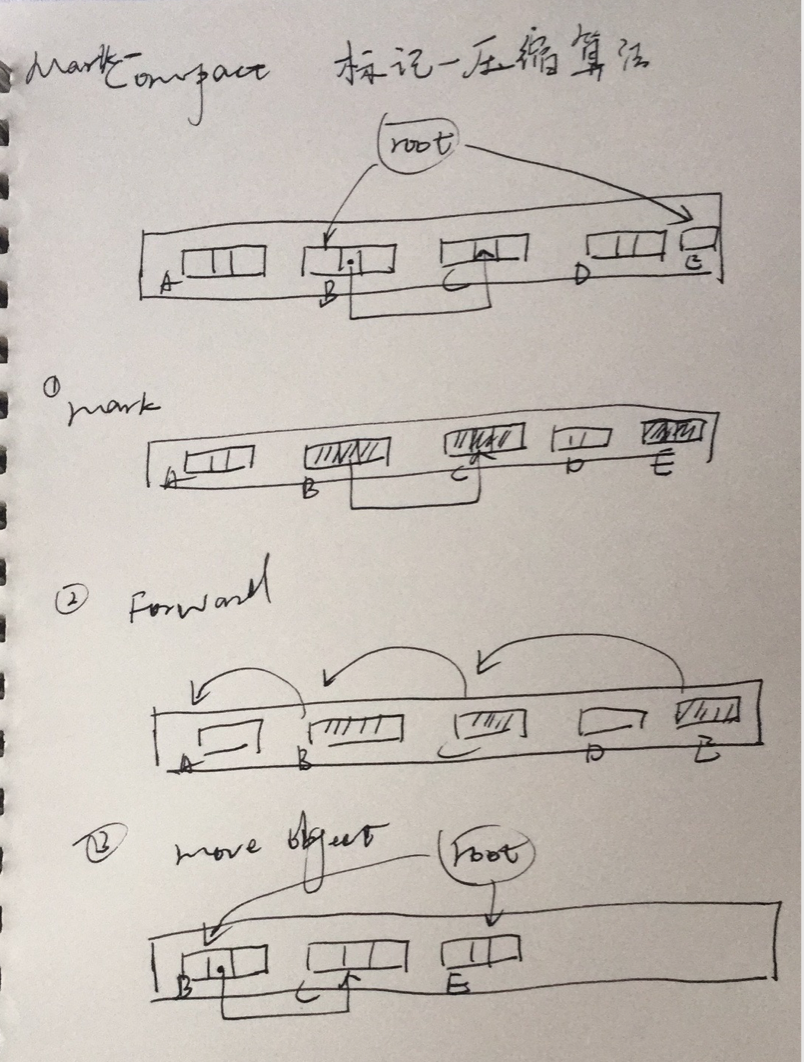 Mark-Compact 标记-压缩算法
root
A B C D E
① mark
A B C D E
② Forward
A B C D E
③ move object root
B C E